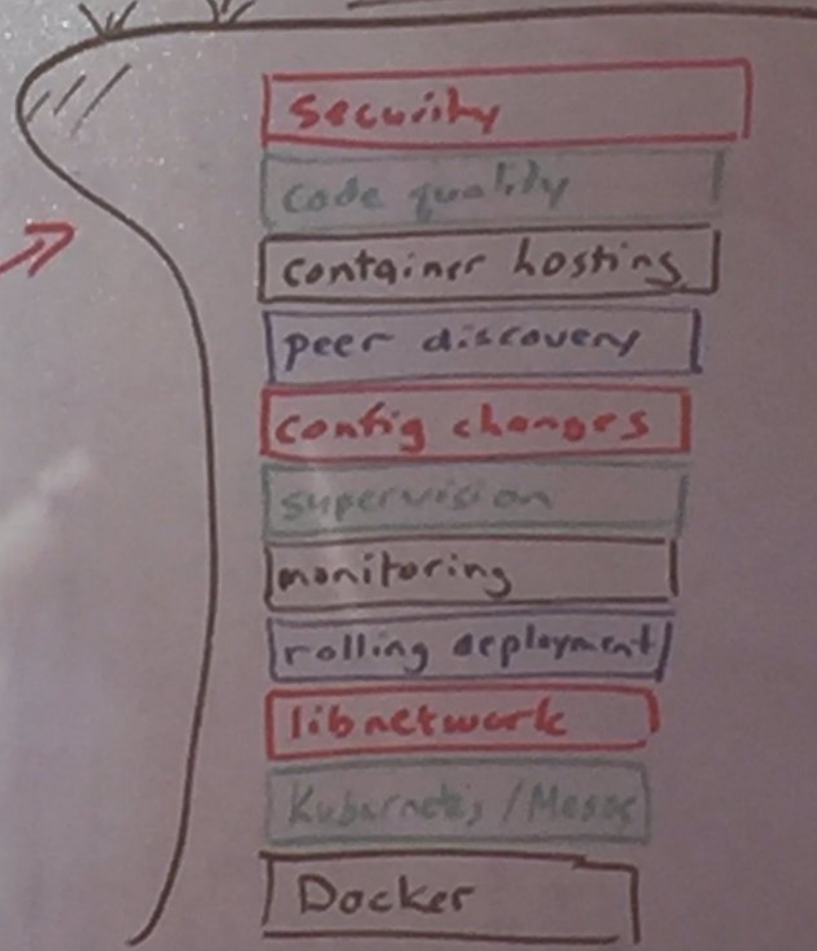 security
code quality
container hosting
peer discovery
config changes
supervision
monitoring
rolling deployment
libnetwork
Kubernetes / Mesos
Docker